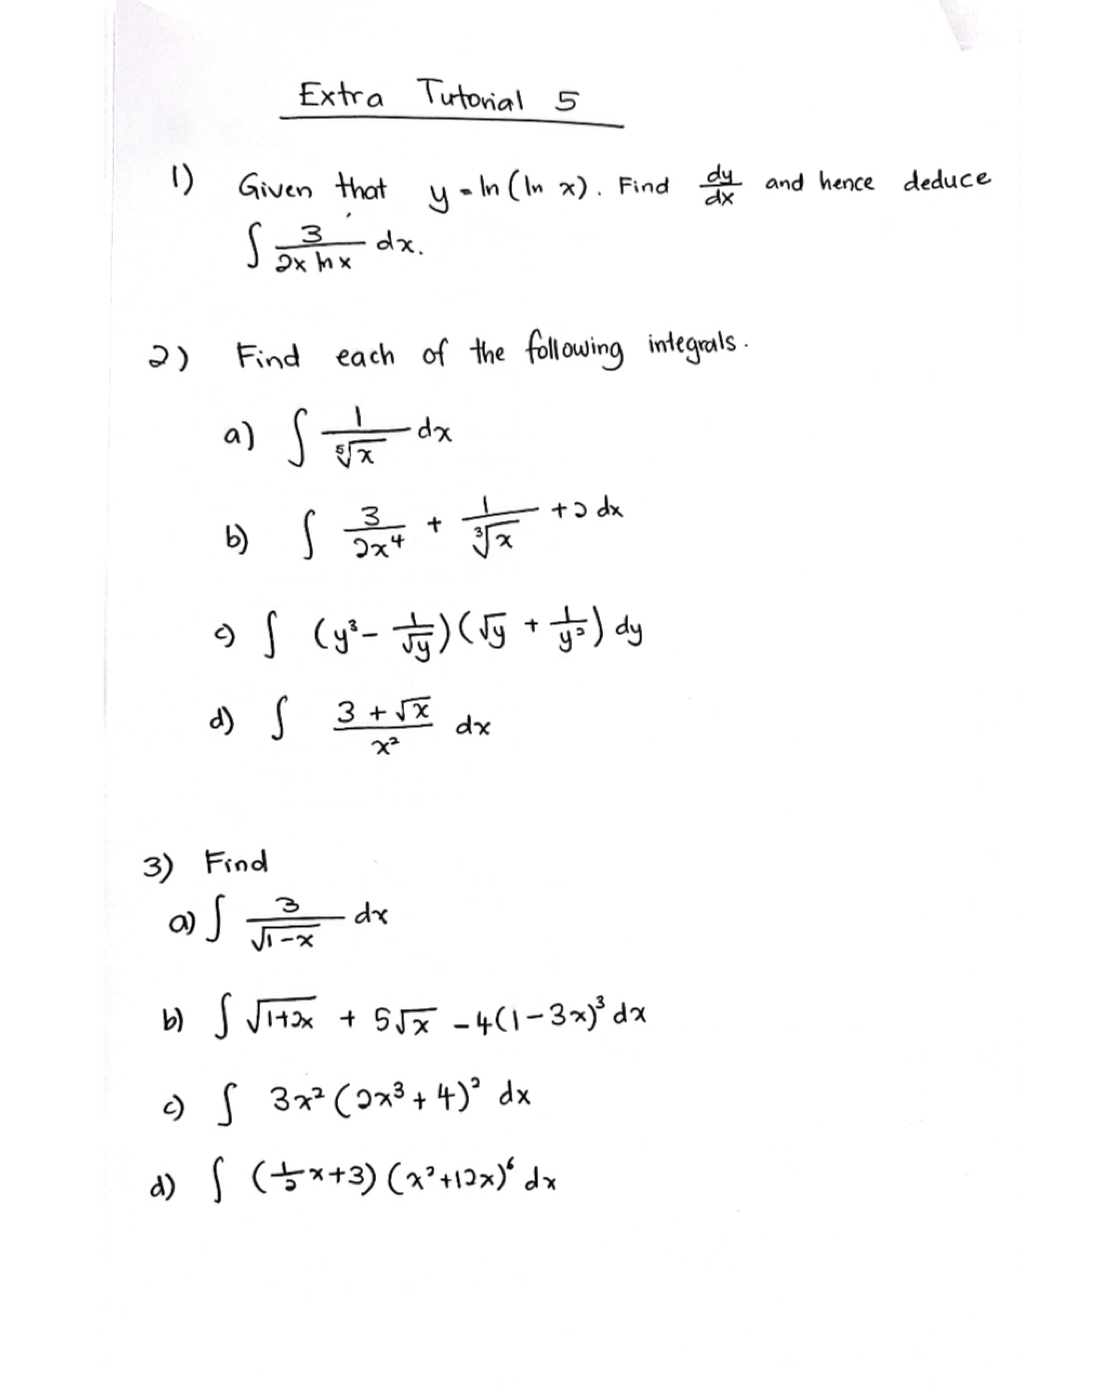 Extra Tutorial 5
1) Given that y = ln (ln x). Find dy/dx and hence deduce
∫ 3/(2x ln x) dx.
2) Find each of the following integrals.
a) ∫ 1/⁵√x dx
b) ∫ 3/(2x⁴) + 1/³√x + 2 dx
c) ∫ (y³ - 1/√y)(√y + 1/y²) dy
d) ∫ (3 + √x)/x² dx
3) Find
a) ∫ 3/√(1-x) dx
b) ∫ √(1+2x) + 5√x - 4(1-3x)³ dx
c) ∫ 3x² (2x³ + 4)² dx
d) ∫ (1/2 x + 3) (x² + 12x)⁶ dx